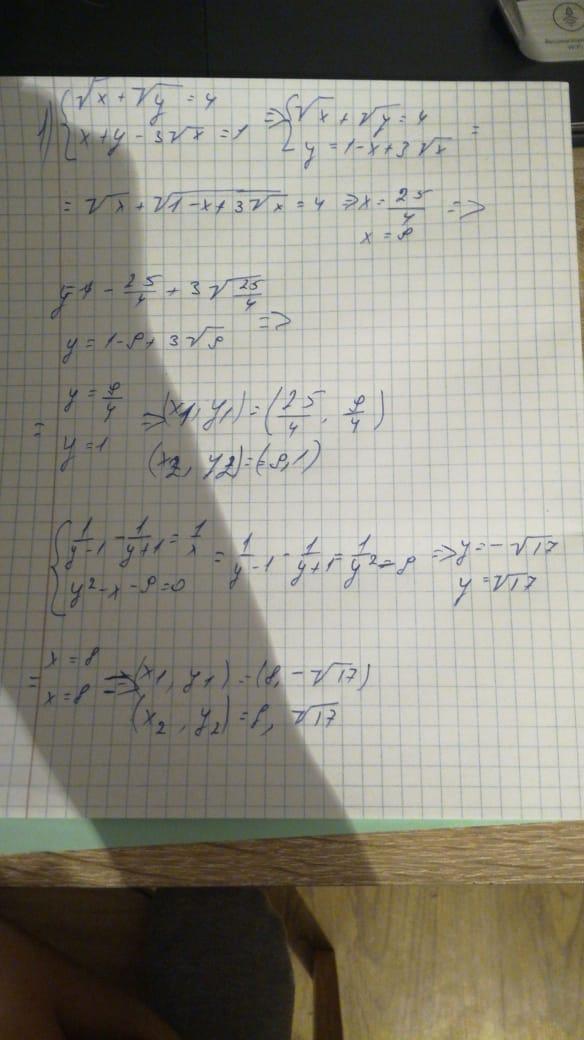 1) { √x + √y = 4
x + y - 3√x = 1 => { √x + √y = 4
y = 1 - x + 3√x =
= √x + √1-x+3√x = 4 => x = 25/4
x = 9 =>
y = 1 - 25/4 + 3√25/4
y = 1 - 9 + 3√9 =>
= y = 9/4
y = 1 => (x1, y1) = (25/4, 9/4)
(x2, y2) = (9, 1)
{ 1/y-1 - 1/y+1 = 1/x
y² - x - 9 = 0 = 1/y-1 - 1/y+1 = 1/y²-9 => y = -√17
y = √17
= x = 8
x = 8 => (x1, y1) = (8, -√17)
(x2, y2) = 8, √17